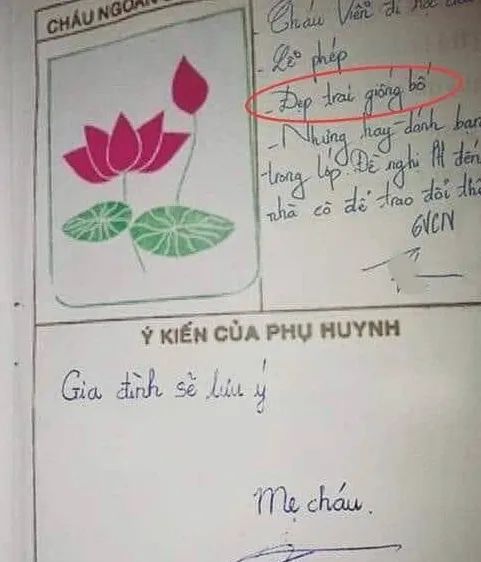 CHÁU NGOAN
Cháu Viễn đi học
- Lễ phép
- Đẹp trai giống bố
- Nhưng hay đánh bạn
trong lớp. Đề nghị PH đến
nhà cô để trao đổi
GVCN
Ý KIẾN CỦA PHỤ HUYNH
Gia đình sẽ lưu ý
Mẹ cháu.